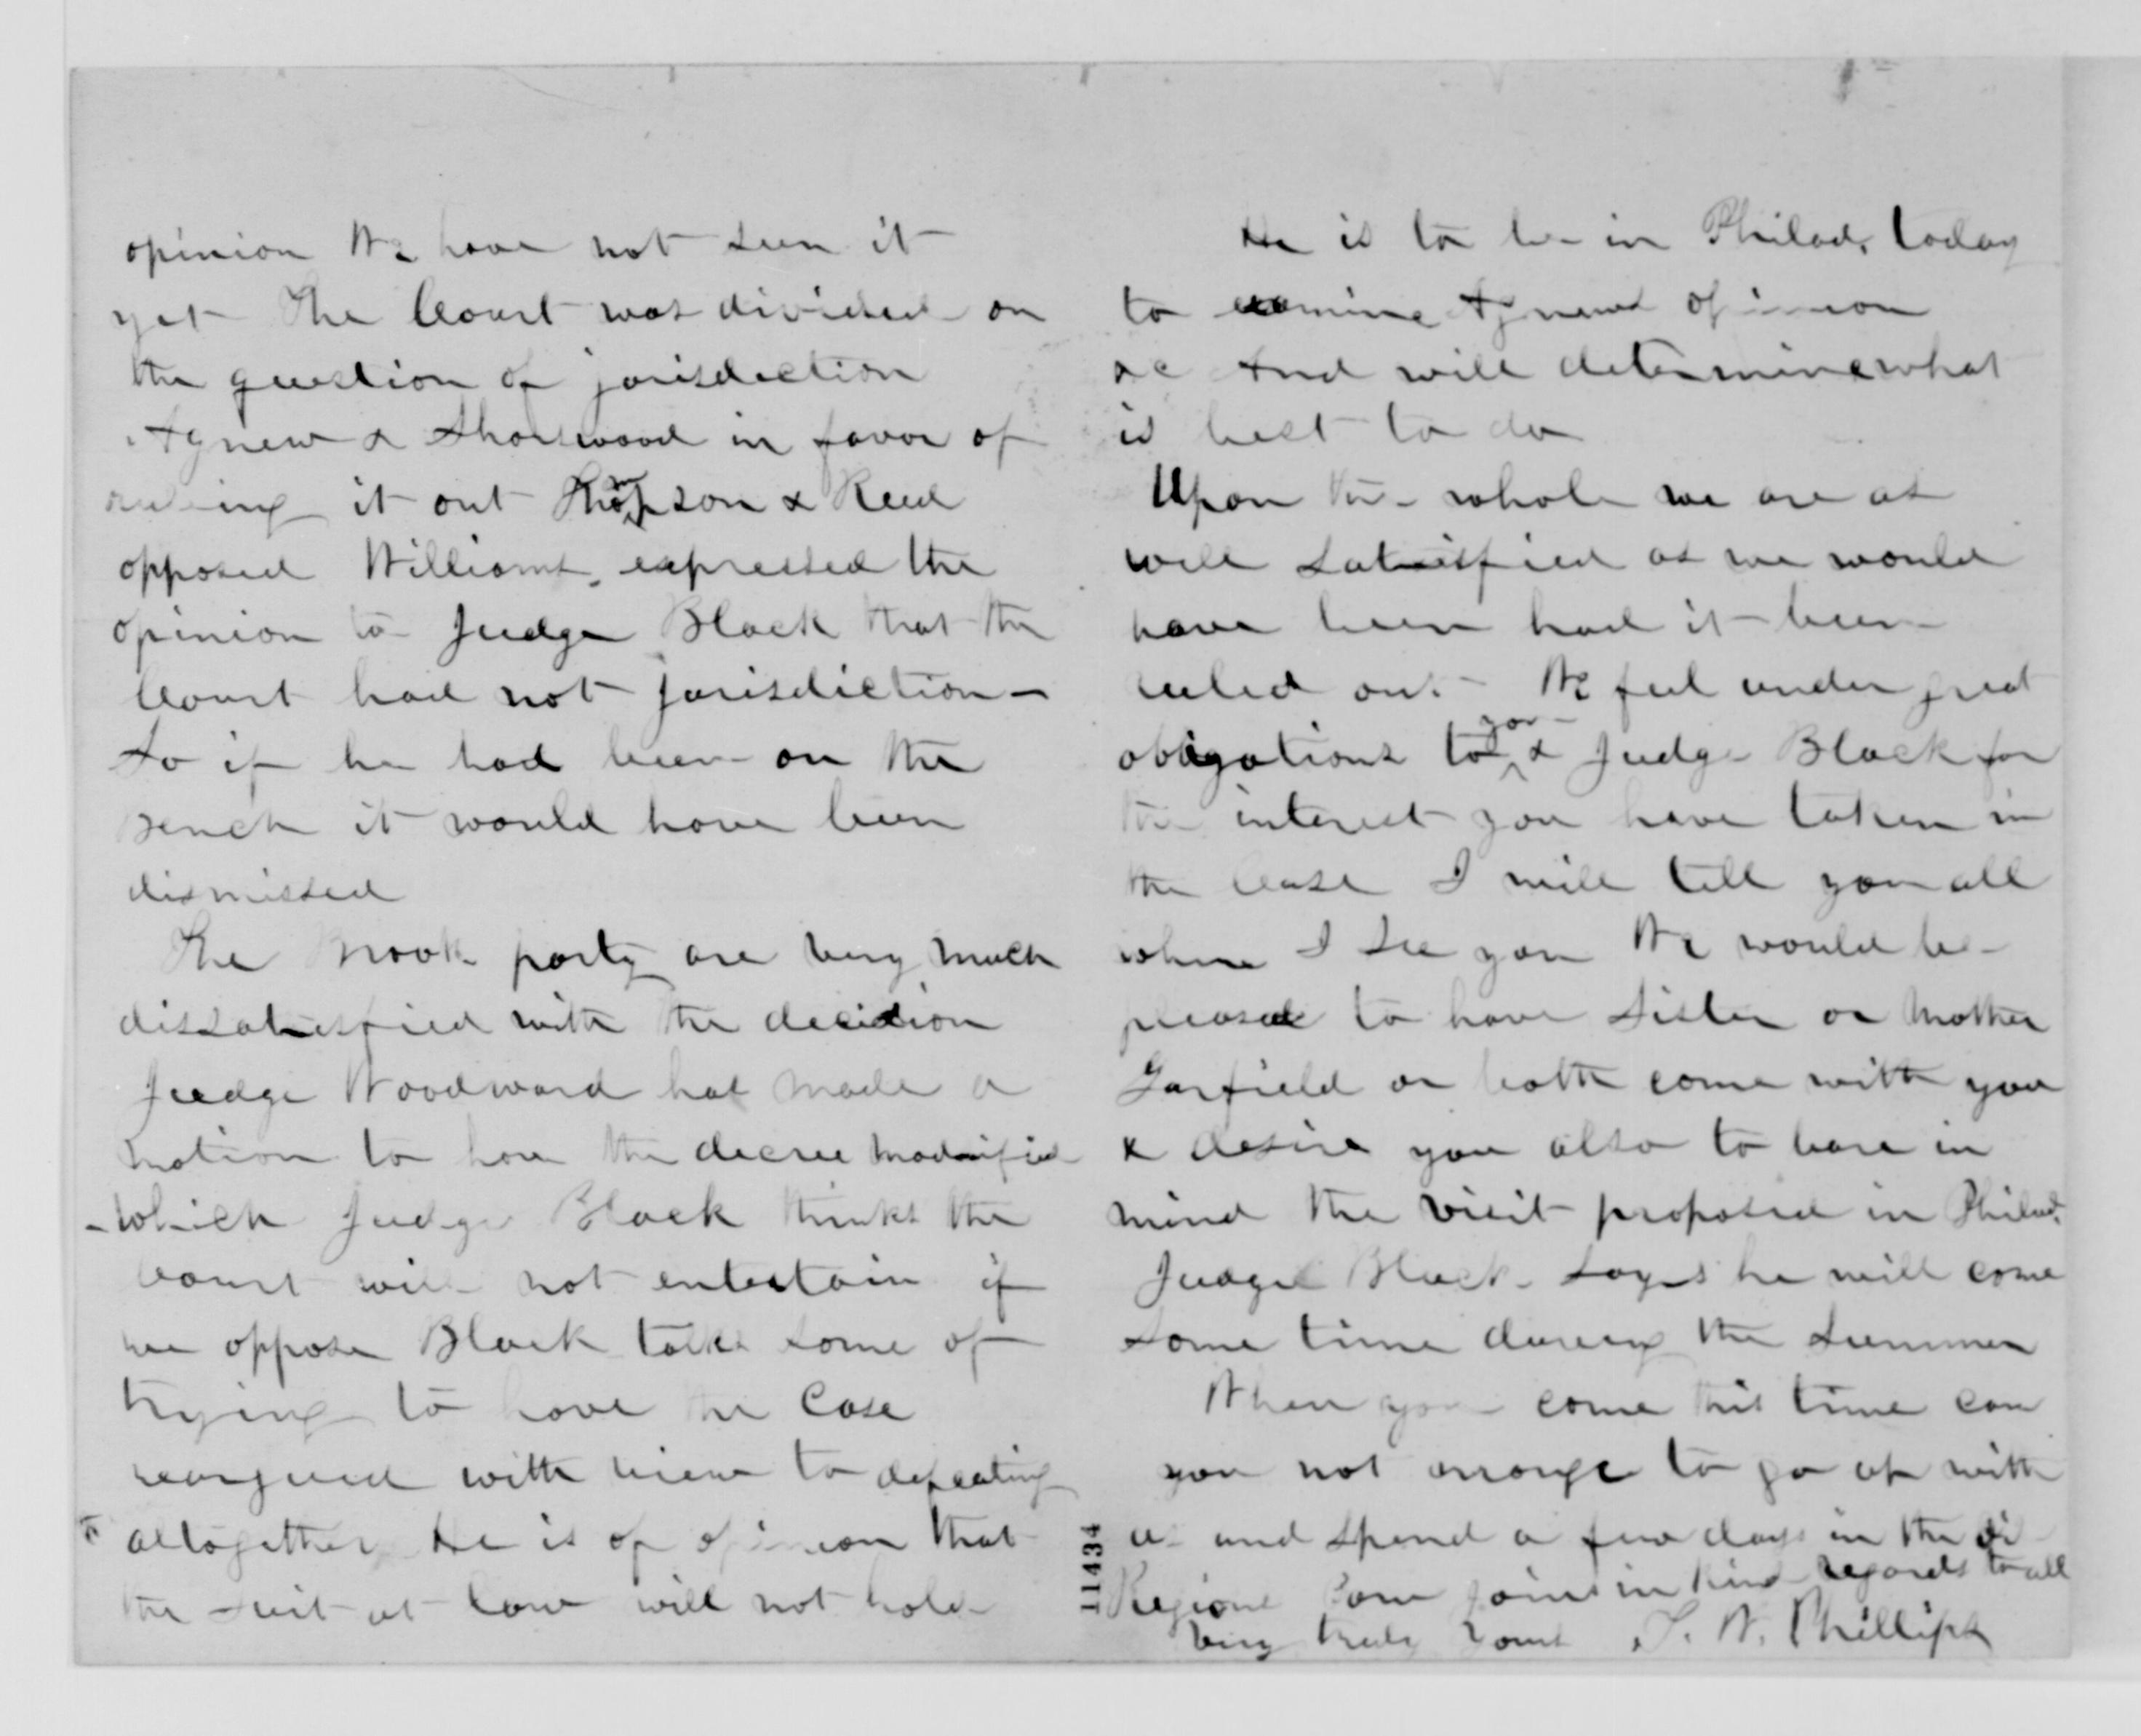 opinion We have not seen it
yet The Court was divided on
the question of jurisdiction
Agnew & Sharswood in favor of
ruling it out Thompson & Reed
opposed Williams expressed the
opinion to Judge Black that the
Court had not jurisdiction -
So if he had been on the
bench it would have been
dismissed
The Brook party are very much
dissatisfied with the decision
Judge Woodward has made a
motion to have the decree modified
- which Judge Black thinks the
Court will not entertain if
we oppose Black talks some of
trying to have the Case
reargued with view to defeating
it altogether He is of opinion that
the suit at law will not hold
He is to be in Philad. today
to examine Agnews opinion
&c And will determine what
is best to do
Upon the whole we are as
well satisfied as we would
have been had it been
ruled out - We feel under great
obligations to you & Judge Black for
the interest you have taken in
the Case I will tell you all
when I see you We would be
pleased to have Sister or Mother
Garfield or both come with you
& desire you also to bare in
mind the visit proposed in Philad.
Judge Black says he will come
some time during the summer
When you come this time can
you not arrange to go up with
us and spend a few days in the Oil
Regions joins in kind regards to all
Very truly yours T. W. Phillips
11434